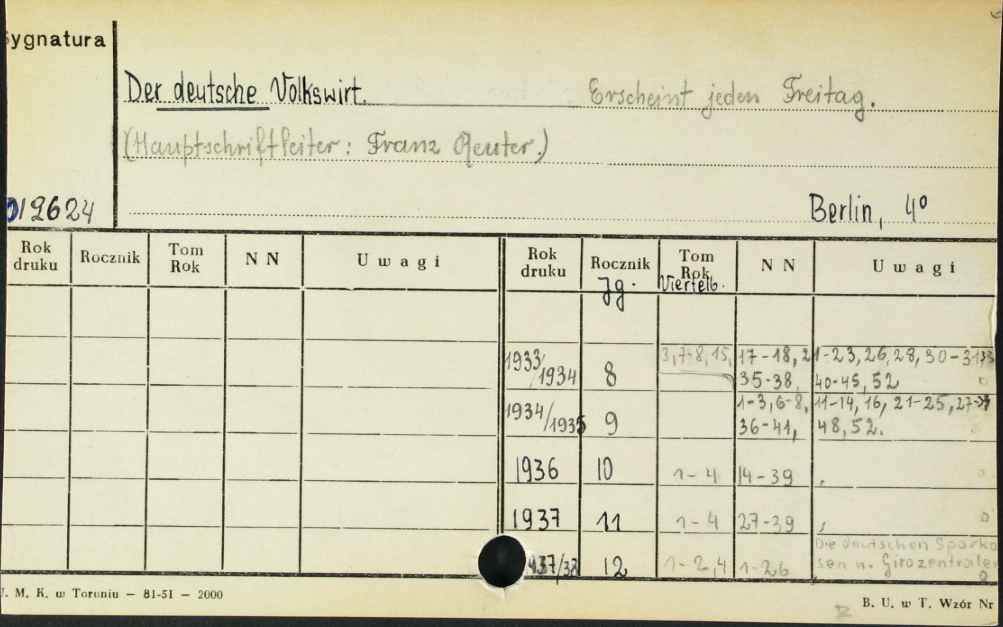 Sygnatura
Der deutsche Volkswirt. Erscheint jeden Freitag.
(Hauptschriftleiter: Franz Reuter.)
012624 Berlin, 4°
Rok druku Rocznik Tom Rok N N Uwagi Rok druku Rocznik Tom Rok N N Uwagi
Jg. Viertelb.
1933/1934 8 3,7-8,15, 17-18, 21-23, 26, 28, 30-
35-38, 40-45, 52
1934/1935 9 1-3, 6-8, 11-14, 16, 21-25, 27-
36-41, 48, 52.
1936 10 1-4 14-39
1937 11 1-4 27-39
Die deutschen Sparkas
1937/38 12 1-2,4 1-26 sen u. Girozentralen
U. M. K. w Toruniu — 81-51 — 2000
B. U. w T. Wzór Nr